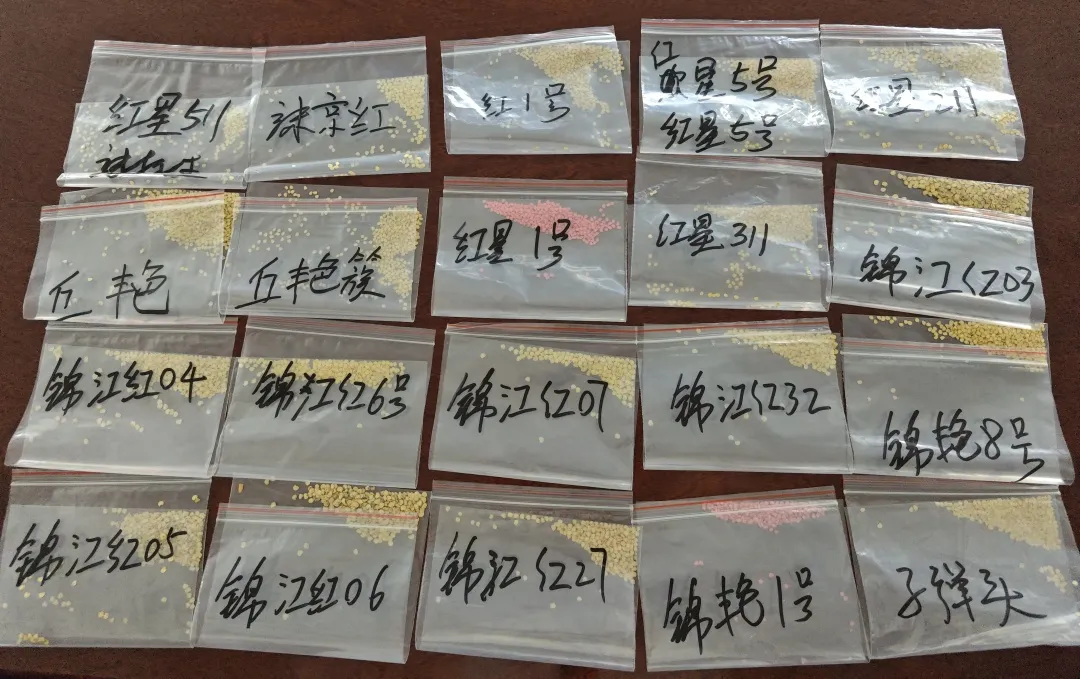 红星511
京红
红1号
红
星5号
红星5号
红星211
丘丰艳
丘丰艳簇
红星1号
红星311
锦江红03
锦江红04
锦江红6号
锦江红07
锦江红32
锦艳8号
锦江红05
锦江红06
锦江红27
锦艳1号
子弹头